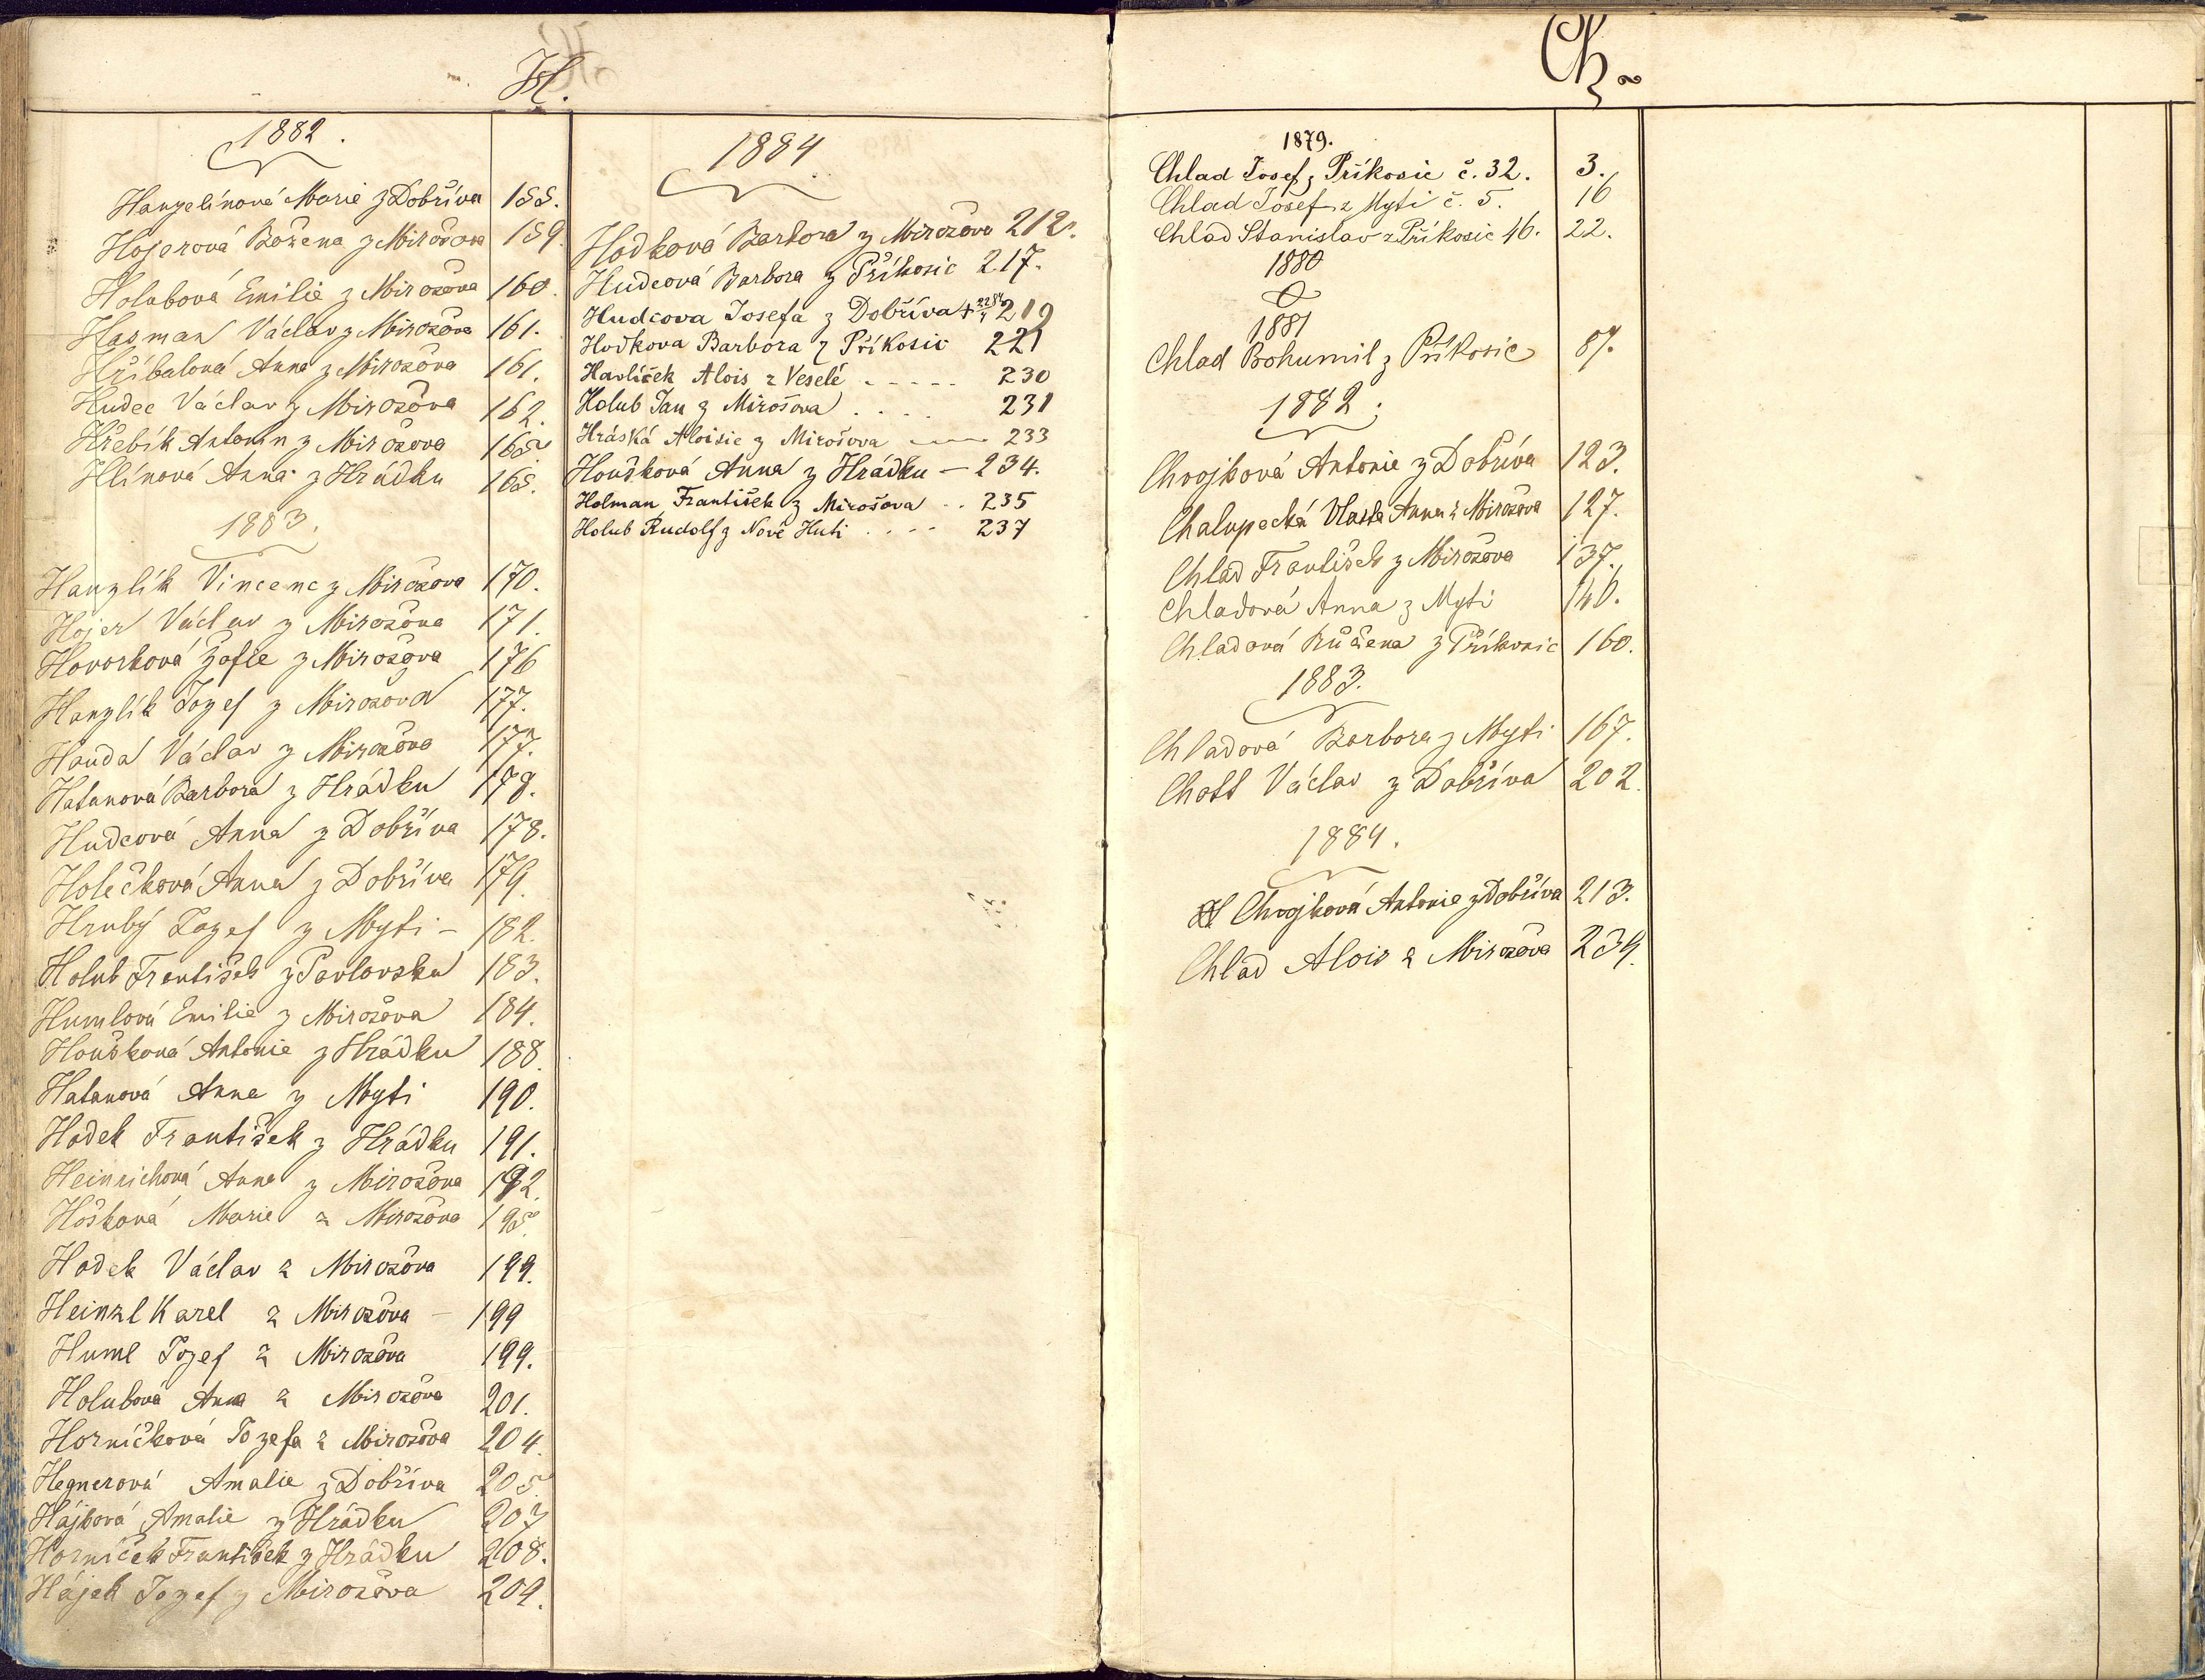 H.
1882.
Hanzelínová Marie z Dobříva 155.
Hojerová Božena z Mirošova 159.
Holubová Emilie z Mirošova 160.
Hasman Václav z Mirošova 161.
Hříbalová Anna z Mirošova 161.
Hudec Václav z Mirošova 162.
Hřebík Antonín z Mirošova 165.
Hlínová Anna z Hrádku 165.
1883.
Hanzlík Vincenc z Mirošova 170.
Hojer Václav z Mirošova 171.
Hovorková Žofie z Mirošova 176
Hanzlík Jozef z Mirošova 177.
Houda Václav z Mirošova 177.
Hatanová Barbora z Hrádku 178.
Hudcová Anna z Dobříva 178.
Holečková Anna z Dobříva 179.
Hrubý Jozef z Myti – 182.
Holub František z Pavlovska 183.
Humlová Emilie z Mirošova 184.
Houšková Antonie z Hrádku 188.
Hatanová Anna z Myti 190.
Hodek František z Hrádku 191.
Heinrichová Anna z Mirošova 192.
Hošková Marie z Mirošova 195.
Hodek Václav z Mirošova 199.
Heinzl Karel z Mirošova – 199
Huml Jozef z Mirošova 199.
Holubová Anna z Mirošova 201.
Horníčková Jozefa z Mirošova 204.
Hegnerová Amalie z Dobříva 205.
Hájková Amalie z Hrádku 207
Horníček František z Hrádku 208.
Hájek Jozef z Mirošova 209.
1884.
Hodková Barbora z Mirošova 212.
Hudcová Barbora z Příkosic 217.
Hudcova Josefa z Dobříva + 219
Hodkova Barbora z Příkosic 221
Havlíček Alois z Veselé - - - - - 230
Holub Jan z Mirošova . . . . 231
Hráská Aloisie z Mirošova 233
Houšková Anna z Hrádku – 234.
Holman František z Mirošova . . 235
Holub Rudolf z Nové Huti . . - - 237
Ch.
1879.
Chlad Josef z Příkosic č. 32. 3.
Chlad Josef z Myti č. 5. 16
Chlad Stanislav z Příkosic 46. 22.
1880
1881
Chlad Bohumil z Příkosic 87.
1882.
Chvojková Antonie z Dobříva 123.
Chalupecká Vlasta Anna z Mirošova 127.
Chlad František z Mirošova 137.
Chladová Anna z Myti 140.
Chladová Růžena z Příkosic 160.
1883.
Chladová Barbora z Myti 167.
Chott Václav z Dobříva 202.
1884.
Chvojková Antonie z Dobříva 213.
Chlad Alois z Mirošova 234.